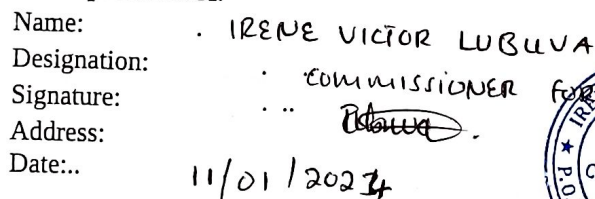 Name: . IRENE VICTOR LUBUVA
Designation: . COMMISSIONER FOR
Signature: . ..
Address:
Date:.. 11/01/2024
IRE
★ P.O
C